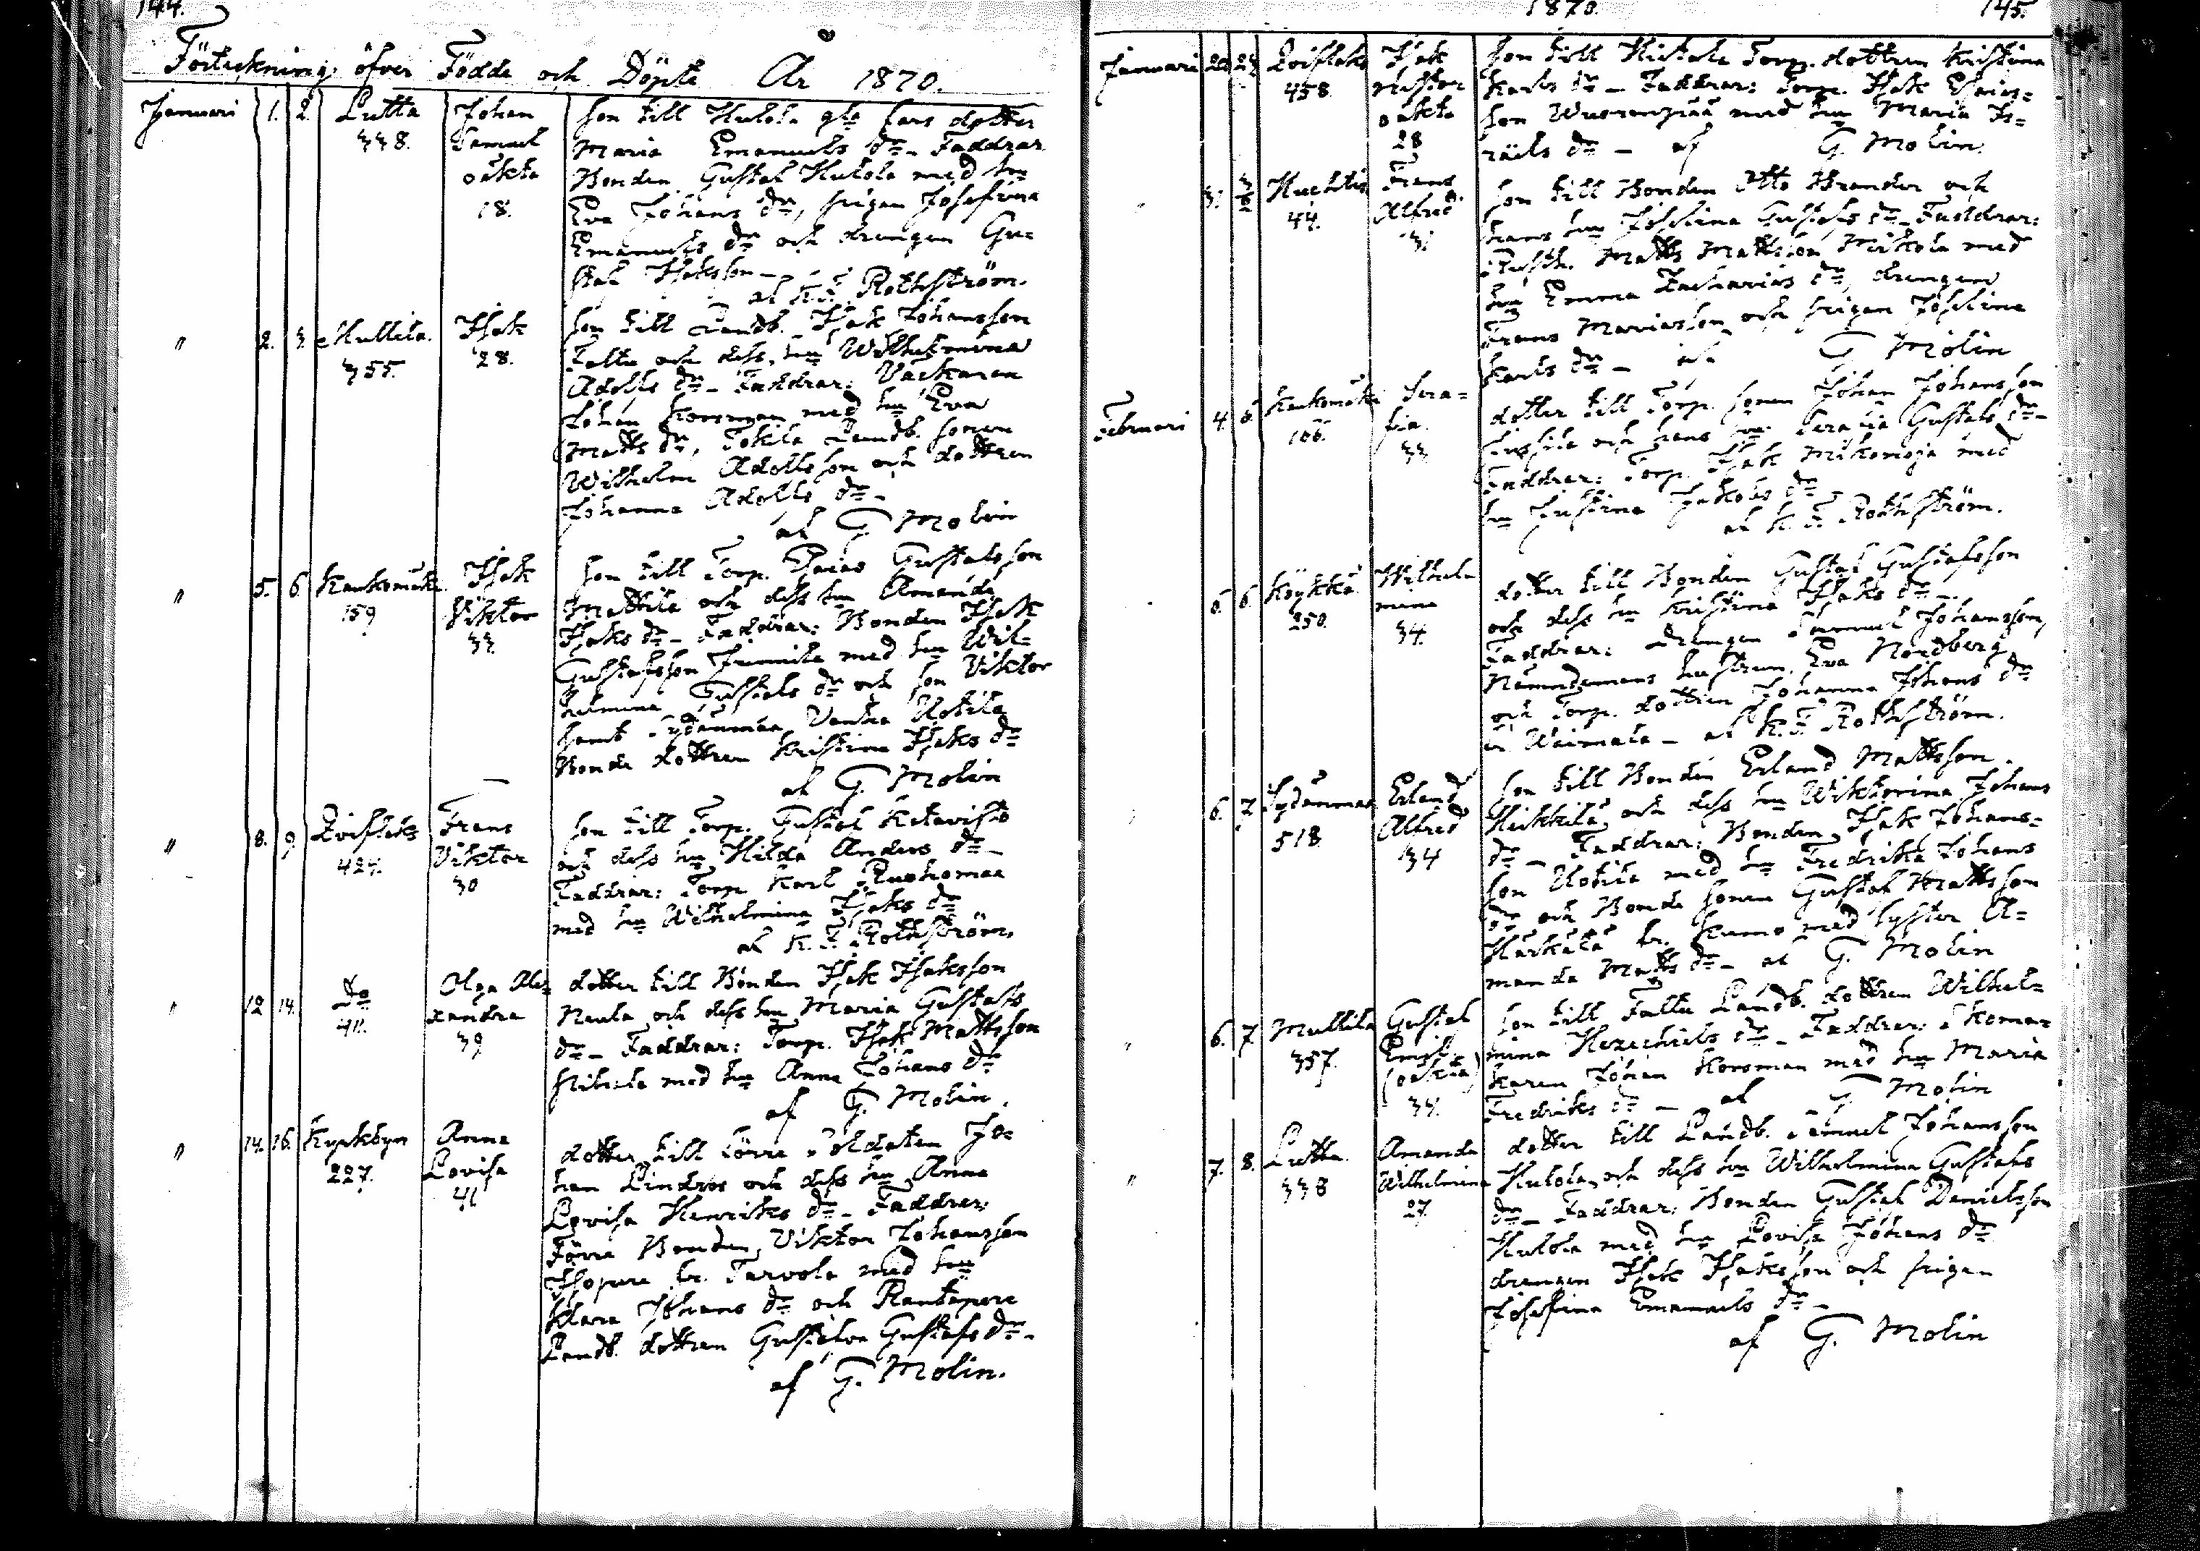 144.
Förteckning öfver Födde och Döpte År 1870.
Januari 1. 2. Lutta 338. Johan Samuel oäkta 18.
Son till Hulola gle fars dotter
Maria Emanuels dr _ Faddrar
Bonden Gustaf Hulola med hu
Eva Johans dr, pigan Josefina
Emanuels dr och drengen Gu=
staf Isaksson _
af K. F. Rothström.
" 2. 3. Mullila. 355. Isak 28.
Son till Landb. Isak Johansson
Faltu och dess hu Wilhelmina
Adolfs dr _ Faddrar:
Johan Korsman med hu Eva
Matts dr, Tokila Landb. sonen
Wilhelm Adolfsson och dottren
Johanna Adolfs dr _
af G Molin
" 5. 6. Kaukomäki. 159 Isak Viktor 33.
Son till Torp. Esaias Gustafsson
Mattila och dess hu Amanda
Isaks dr _ Faddrar: Bonden Isak
Gustafsson Junnila med hu Wil=
helmina Gustafs dr och son Viktor
samt Sydänmaa Vanha Uotila
Bonde dottren Kristina Isaks dr
af G. Molin
" 8. 9. Qvifláks 424. Frans Viktor 30
Son till Torp. Gustaf Katavisto
och dess hu Hilda Anders dr _
Faddrar: Torp Karl Ruohomaa
med hu Wilhelmina Isaks dr
af K. F. Rothström.
" 12 14. Do 411. Olga Alexandra 39
dotter till Bonden Isak Isaksson
Naula och dess hu Maria Gustafs
dr _ Faddrar: Torp. Isak Mattsson
med hu Anna Johans dr
af G. Molin.
" 14. 16. Kyrkbyn 227. Anna Lovisa 41
dotter till förre Soldaten Jo=
han Lindros och dess hu Anna
Lovisa Henriks dr _ Faddrar:
Förre Bonden Viktor Johansson
Isopere br. Tarvola med hu
Klara Johans dr och Rantapere
Landb. dottren Gustafva Gustafs dr _
af G. Molin.
1870. 145.
Januari 20 23 Qvifláks 458. Isak Nestor oäkta 28
Son till Torp. dottren Kristina
Karls dr _ Faddrar: Torp. Isak Esaias=
son Wuorenpää med hu Maria Is=
räels dr _ af G. Molin.
" 31 Huchtis 44. Frans Alfred 31
Son till Bonden Otto Brander och
hans hu Josefina Gustafs dr _ Faddrar:
Rusth. Matts Mattsson Mikola med
hu Emma Zacharias dr, drengen
Frans Mariasson och pigan Josefina
Karls dr _ af G Molin
Februari 4. 6. Kaukomäki 106. Serafia. 33
dotter till Torp. sonen Johan Johansson
och hans hu Serafia Gustafs dr _
Faddrar: Torp. Isak Mikonoja med
hu Justina Jakobs dr _
af K. F. Rothström.
" 5. 6. Köykkä 250. Wilhelmina 34.
dotter till Bonden Gustaf Gustafsson
och dess hu Kristina Isaks dr _.
Faddrar: drengen Samuel Johansson,
Nämndemans hustrun Eva Nordberg
och Torp. dottren Johanna Johans dr
br. Waimala _ af K. F. Rothström.
" 6. 7. Sydänmaa 518. Erland Alfred 34
Son till Bonden Erland Mattsson
Heikkilä och dess hu Wiktorina Johans
dr _ Faddrar: Bonden Isak Johans=
son Uotila med hu Fredrika Johans
dr och Bonde sonen Gustaf Mattsson
Härkälä br. Kumo med syster A=
manda Matts dr _ af G. Molin
" 6. 7. Mullila 357. Gustaf Emil (oäkta) 34.
Son till Faltu Landb. dottren Wilhel=
mina Hezechiels dr _ Faddrar: Skoma=
karen Johan Korsman med hu Maria
Fredriks dr _ af G Molin
" 7. 8. Lutta. 338 Amanda Wilhelmina 27.
dotter till Landb. Samuel Johansson
Hulola och dess hu Wilhelmina Gustafs
dr _ Faddrar: Bonden Gustaf Danielsson
Hulola med hu Lovisa Johans dr
drengen Isak Isaksson och pigan
Josefina Emanuels dr _
af G. Molin